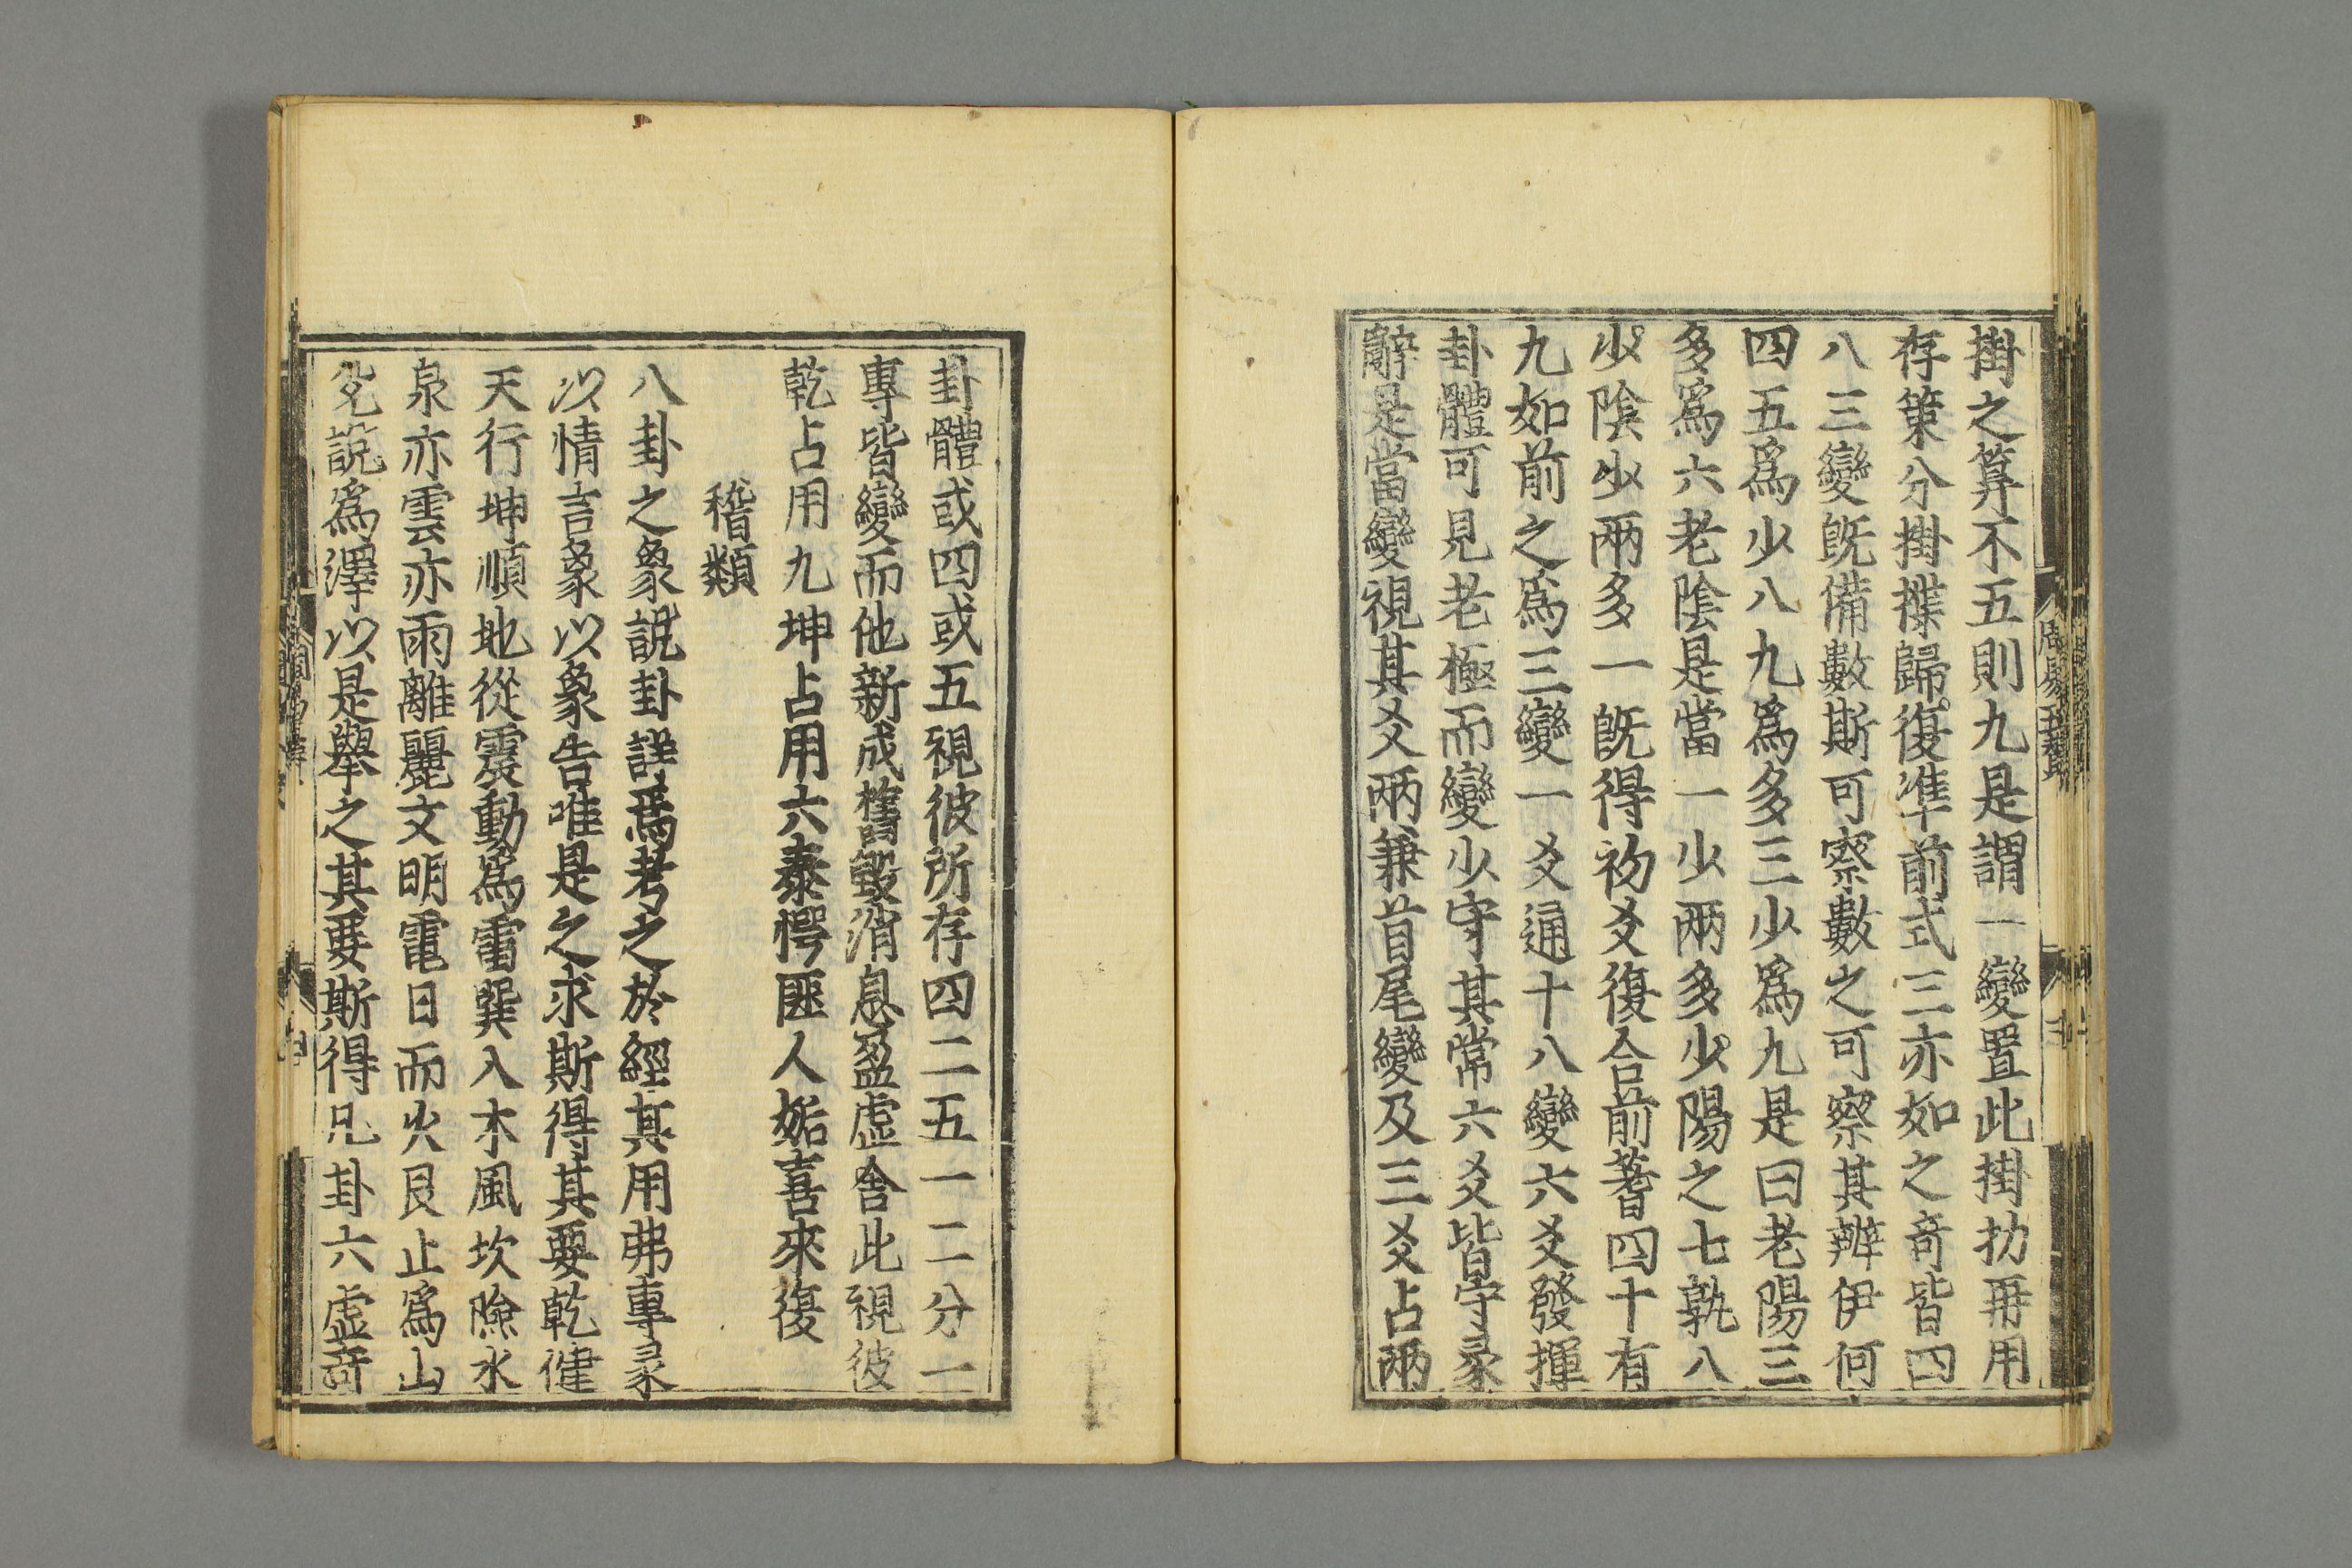 掛之算不五則九是謂一變置此掛扐再用
存策分掛揲歸復準前式三亦如之奇皆四
八三變旣備數斯可察數之可察其辨伊何
四五爲少八九爲多三少爲九是曰老陽三
多爲六老陰是當一少兩多少陽之七孰八
少陰少兩多一旣得初爻復合前蓍四十有
九如前之爲三變一爻通十八變六爻發揮
卦體可見老極而變少守其常六爻皆守彖
辭是當變視其爻兩兼首尾變及三爻占兩
卦體或四或五視彼所存四二五一二分一
專皆變而他新成舊毀消息盈虛舍此視彼
乾占用九坤占用六泰愕匪人姤喜來復
稽類
八卦之象說卦詳焉考之於經其用弗專彖
以情言象以象告唯是之求斯得其要乾健
天行坤順地從震動爲雷巽入木風坎險水
泉亦雲亦雨離麗文明電日而火艮止爲山
兌說爲澤以是擧之其要斯得凡卦六虛奇